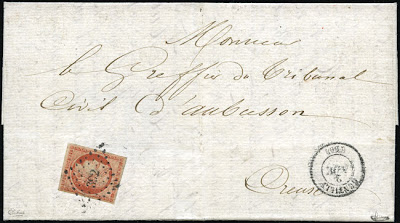 Monsieur
le Greffier du Tribunal
Civil d'aubusson
Creuse